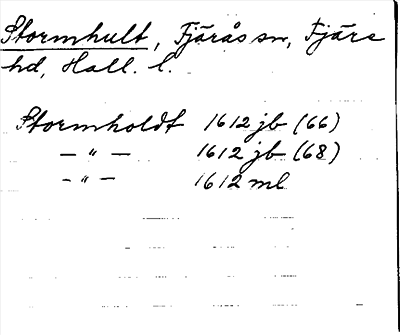 Stormhult, Fjärås sn, Fjäre
hd, Hall. l.
Stormholdt 1612 jb (66)
— " — 1612 jb (68)
— " — 1612 ml